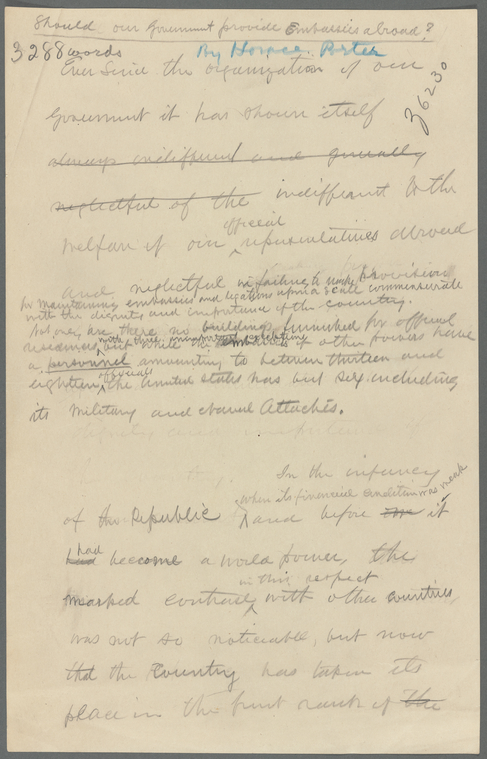 Should our Government provide Embassies abroad?
3288 words
By Horace Porter
36230
Ever since the organization of our
Government it has shown itself
always indifferent and generally
neglectful of the indifferent to the
official
welfare of our representatives abroad
and neglectful in failing to make provision
for maintaining embassies and legations upon a scale commensurate
with the dignity and importance of the country.
Not only are there no buildings furnished for official
residences, but while
other powers have
a personnel amounting to between thirteen and
eighteen officials the United States has but six including
its Military and Naval Attachés.
In the infancy
when its financial condition was weak
of the Republic and before it
had
had become a world power, the
in this respect
marked contrast with other countries,
was not so noticeable, but now
that the Country has taken its
place in the front rank of the